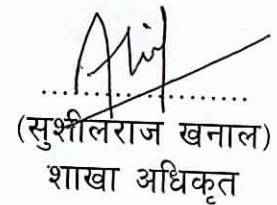 ....................
(सुशीलराज खनाल)
शाखा अधिकृत